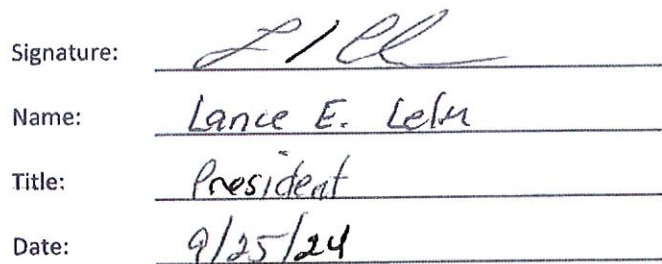 Signature:
Name: Lance E.
Title: President
Date: 9/25/24